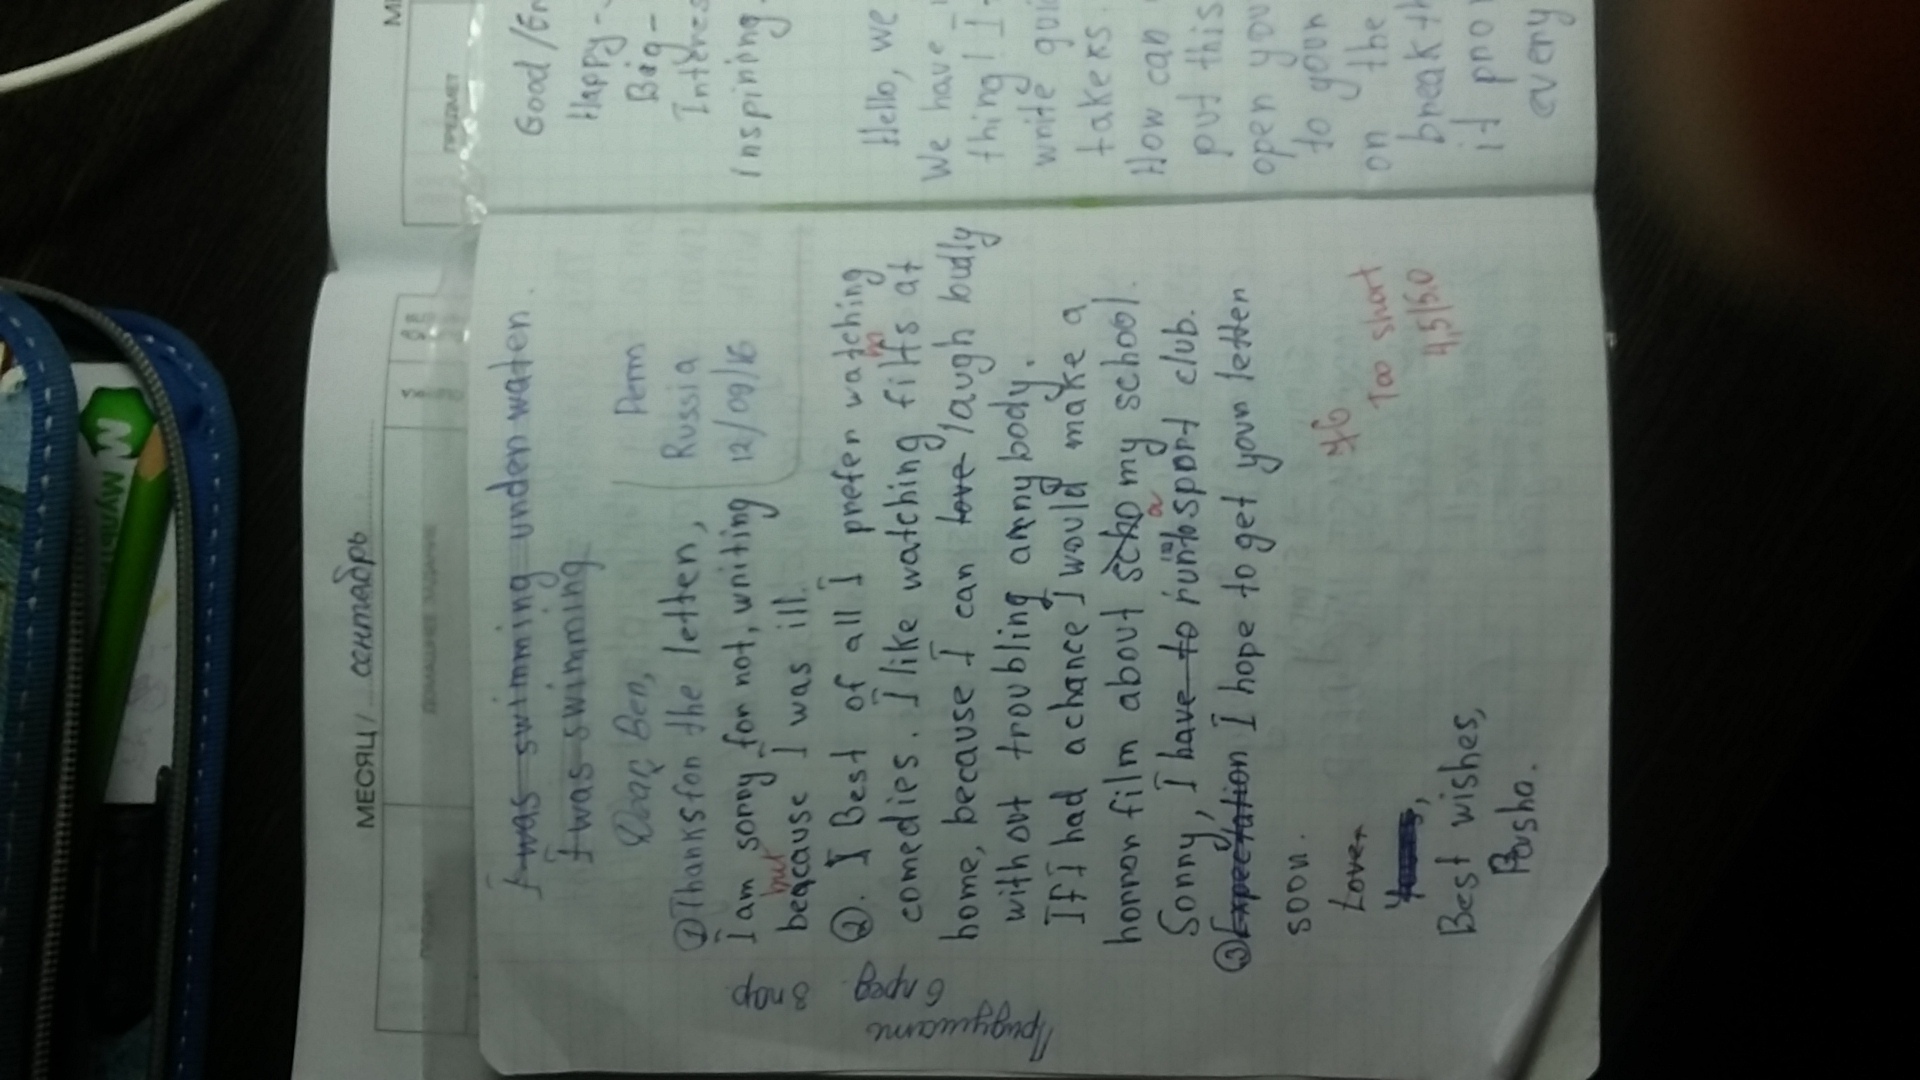 МЕСЯЦ/ сентябрь
I was swimming under water.
I was swimming
Perm
Russia
12/09/16
Dear Ben,
① Thanks for the letter,
I am sorry for not, writing
but
beqcause I was ill.
②. I Best of all I prefer watching
comedies. I like watching films at
home, because I can love laugh budly
without troubling annybody.
If I had a chance I would make a
horror film about scho my school.
a
Sorry, I have to run to sport club.
③ Expectation I hope to get your letter
soon.
Love,
Best wishes,
Pasha.
76
Too short
4,5/5.0
Придумать
6 пред.
ПРЕДМЕТ
Good /
Happy -
Big -
Interes
Inspiring
Hello, we
We have
thing! I
write
takers.
How can
put this
open you
to your
on the
break th
it pro
every